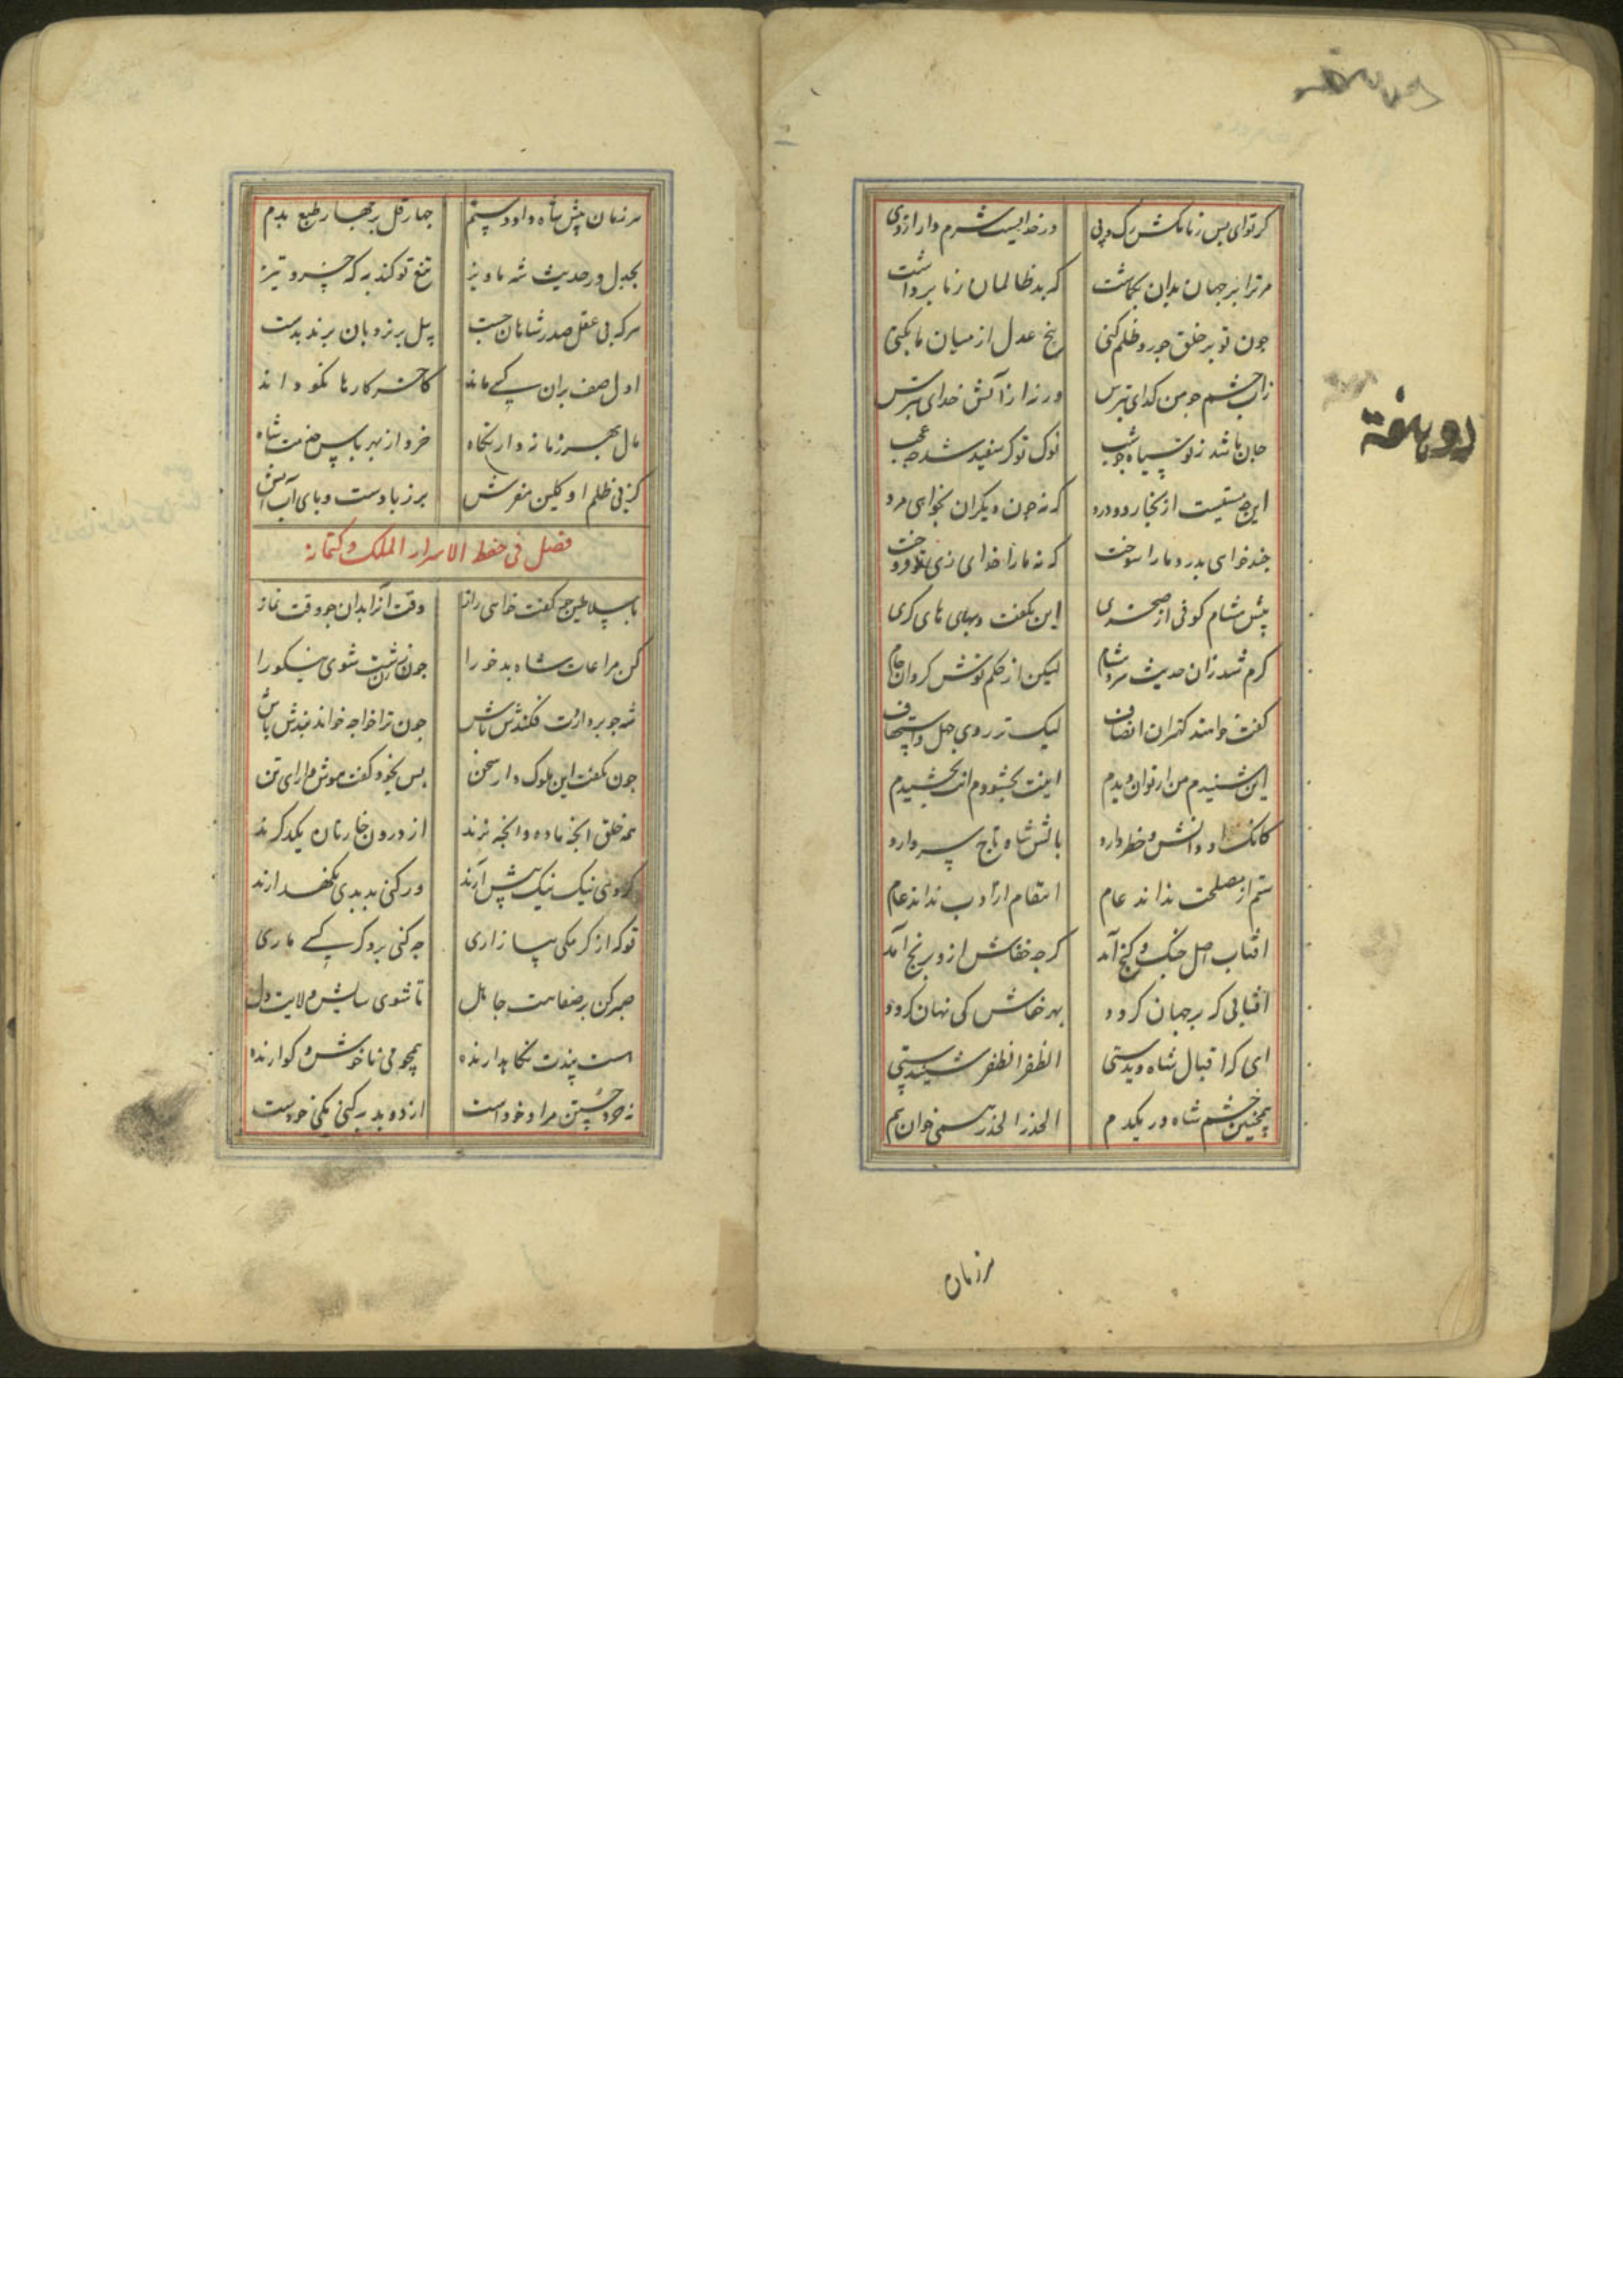 کر توای بس زنا مکش رک و پی ورخدایست شرم دار ازوی
مر ترا بر جهان بدان بکماشت که بد ظالمان زما برداشت
جون تو بر خلق جور و ظلم کنی بیخ عدل از میان ما بکنی
زاب جشم جو من کدای بترس ورنه از آتش خدای بترس
جان باشد ز تو سیاه جو شب نوک توک سفید شد جه عجب
این جه سقیست از بخار و دود که نه جون دیکران بخواهی مرد
جند خواهی بدرد ما را سوخت که نه ما را خدای زی تو فروخت
پیش هشام کوفی از صخدی این بکفت و بهای های کری
کرم شد زان حدیث سرد هشام لیکن از حکم نوش کرد ان جام
کفت خوانند کهتران انصاف لیک تر روی جهل و استخفاف
این شنیدم من از تو ان دیدم اینت بخشودم انت بخشیدم
کانک او دانش و خطر دارد بالش شاه تاج سر دارد
ستم از مصلحت نداند عام انتقام از ادب نداند عام
افتاب اصل جنک و کنج آمد کرجه خفاش ازو برنج آمد
آفتابی که بر جهان کردد بهر خفاش کی نهان کردد
ای که اقبال شاه دیدستی الظفر الظفر شنیدستی
همچنین خشم شاه در یکدم الحذر الحذر همی خوان هم
مرزمان
دو هفته
مرزمان پیش شاه داود ستم جهار قل بر جهار طبع بدم
بجدل در حدیث شه ماویز تیغ تو کند به که خسرو تیز
هرکه بی عقل صدر شاهان جست پیل بر نردبان برند بدست
اول صف بران کسی ماند کاخر کارها نکو داند
مال بهر زمانه دار نکاه خرد از بهر پاس خدمت شاه
کز پی ظلم او کلین مفرش برزباد دست و پای آب آتش
فصل فی حفظ الاسرار الملک و کتمانه
با سلاطین جو کفت خواهی راز وقت آنرا بدان جو وقت نماز
کن مراعات شاه بدخو را جون زن زشت شوی نیکو را
شه جو بردارت فکندش باش جون ترا خواجه خواند بندش باش
جون بکفت این ملوک وار سخن بس بخود کفت هوش دارای تن
همه خلق انجه ماده وانجه نرند از درون خازنان یکدکرند
کر کنی نیک نیک پیش آرند ور کنی بد بدی نکهدارند
تو که از کرمکی بیازاری جه کنی برد کر کسی ماری
صبر کن بر سفاهت جاهل تا شوی سایس ولایت دل
هست پندت نکاهدارنده همچو می ناخوش و کوارنده
نه جو جستن مراد خود است ازده بد به کنی نکنی خودست